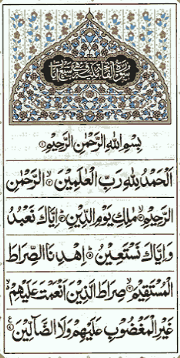 سورة الفاتحة مكية وهي سبع آيات
بِسْمِ اللهِ الرَّحْمٰنِ الرَّحِيْمِ
اَلْحَمْدُ لِلّٰهِ رَبِّ الْعٰلَمِيْنَ الرَّحْمٰنِ
الرَّحِيْمِ مٰلِكِ يَوْمِ الدِّيْنِ اِيَّاكَ نَعْبُدُ
وَاِيَّاكَ نَسْتَعِيْنُ اِهْدِنَا الصِّرَاطَ
الْمُسْتَقِيْمَ صِرَاطَ الَّذِيْنَ اَنْعَمْتَ عَلَيْهِمْ
غَيْرِ الْمَغْضُوْبِ عَلَيْهِمْ وَلَا الضَّآلِّيْنَ